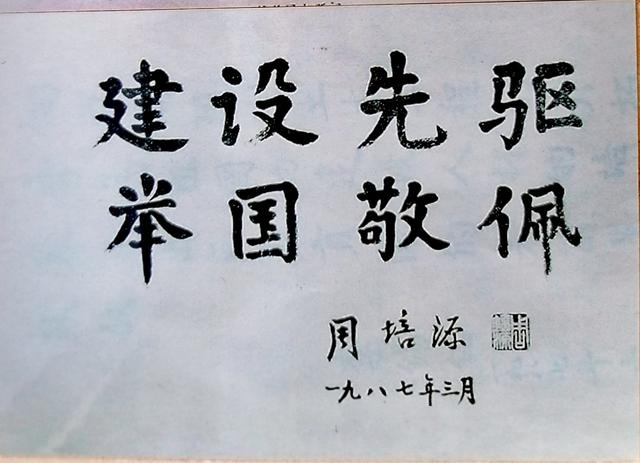 建设先驱
举国敬佩
周培源
一九八七年三月